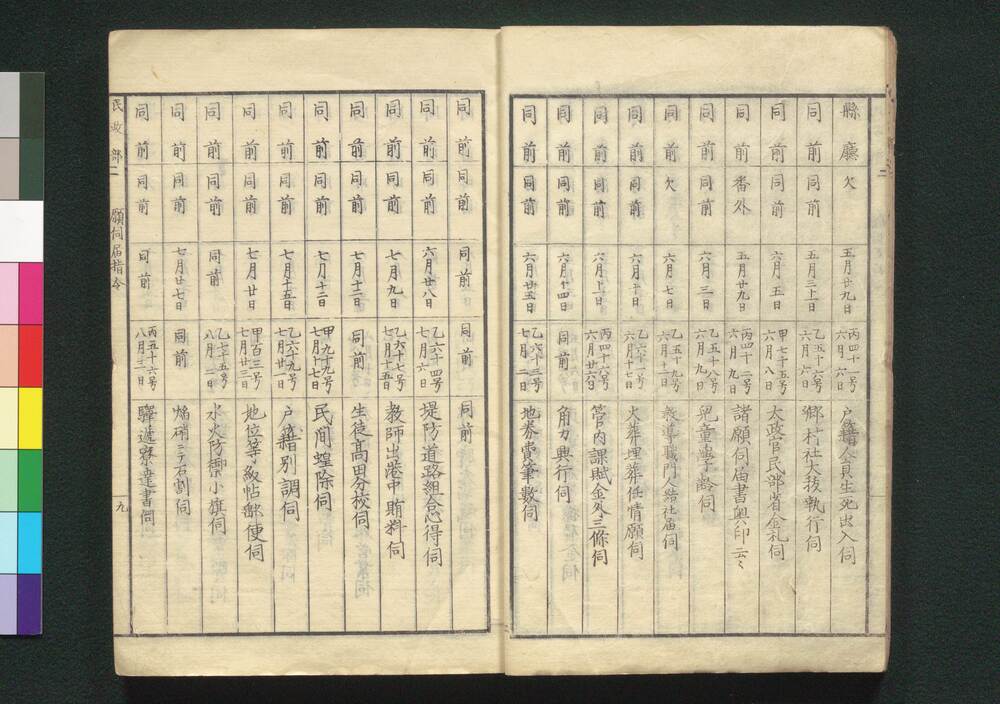 縣廳 欠 五月廿九日 丙四十一号 六月六日 戸籍全員生死出入伺
同前 同前 五月三十日 乙五十六号 六月 郷村社大祓執行伺
同前 同前 六月五日 甲七十五号 六月八日 太政官民部省金札伺
同前 番外 五月廿九日 丙四十二号 六月九日 諸願伺届書奥印云々
同前 同前 六月三日 乙五十八号 六月九日 児童学齢伺
同前 欠 六月七日 乙五十九号 六月十一日 教導職門人結社届伺
同前 同前 六月十日 六月十七日 火葬埋葬任情願伺
同前 同前 六月十日 丙四十六号 六月廿六日 管内課賦金外三條伺
同前 同前 六月十四日 同前 角力興行伺
同前 同前 六月廿五日 乙六十三号 七月二日 地券書筆数伺
同前 同前 同前 同前 同前
同前 同前 六月廿八日 乙六十四号 七月六日 堤防道路組合心得伺
同前 同前 七月九日 乙六十七号 七月十五日 教師出港中賄料伺
同前 同前 七月十二日 同前 生徒高田分校伺
同前 同前 七月十二日 甲九十九号 七月十七日 民間蝗除伺
同前 同前 七月十五日 乙六十九号 七月廿一日 戸籍別調伺
同前 同前 七月廿日 甲百三号 七月廿三日 地位等級帖郵便伺
同前 同前 同前 乙七十五号 八月二日 水火防禦小旗伺
同前 同前 七月廿七日 同前 焔硝ニテ石割伺
同前 同前 同前 丙五十六号 八月三日 驛逓寮達書伺
民政部二 願伺届指令 九